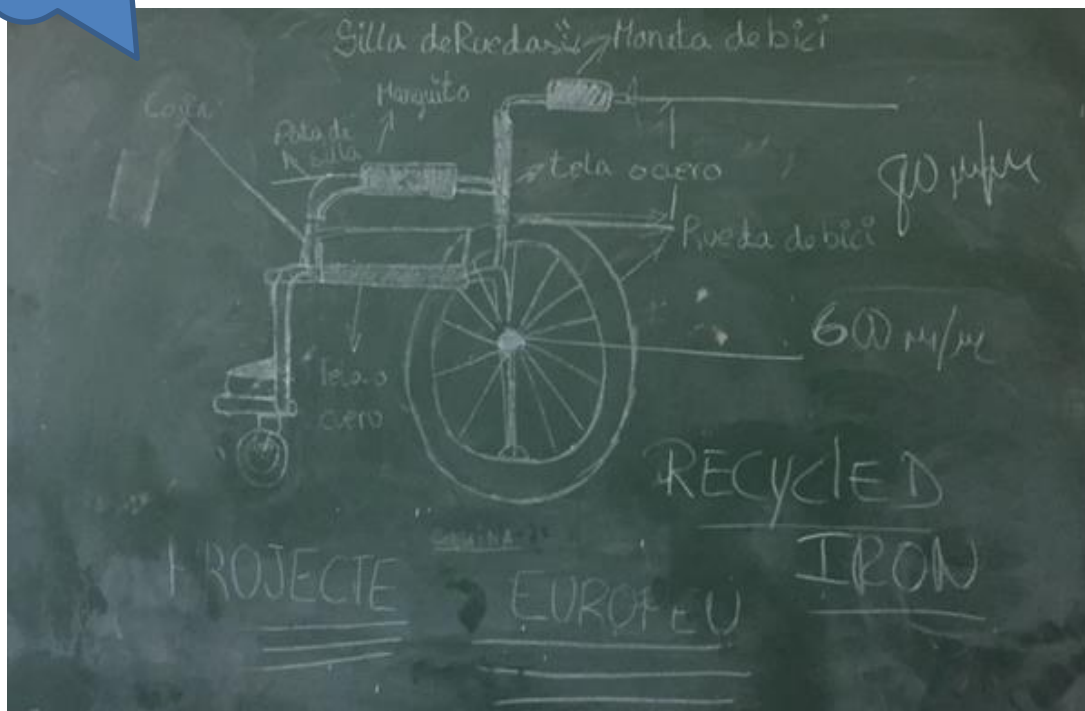 Silla de Ruedas Maneta de bici
Manguito
Pata de
la silla
tela o acero
Rueda de bici
600 m/m
tela o
acero
RECYCLED
IRON
PROJECTE EUROPEU